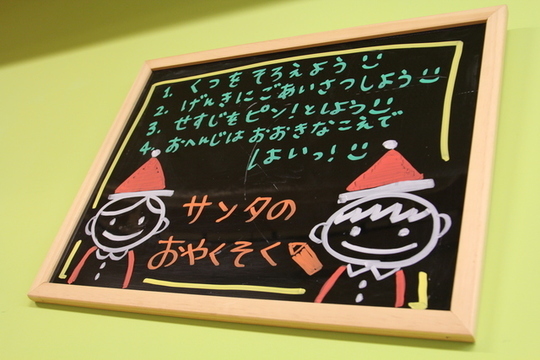 1. くつをそろえよう
2. げんきにごあいさつしよう
3. せすじをピン!としよう
4. おへんじはおおきなこえで
はいっ!
サンタの
おやくそく